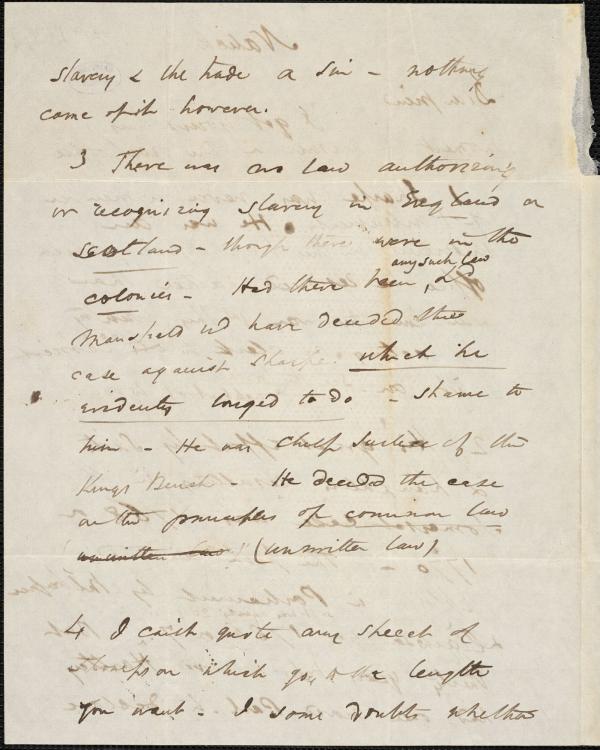 slavery & the trade a sin - nothing
came of it however.
3 There was no law authorizing
or recognising slavery in England or
Scotland - though there were in the
any such law
colonies - Had there been, Ld
Mansfield wd have decided the
case against Sharpe which he
evidently longed to do - shame to
him - He was Chief Justice of the
Kings Bench - He decided the case
on the principles of common law
unwritten law (unwritten law)
4 I can't quote any speech of
which go to the length
you want - I some doubts whether